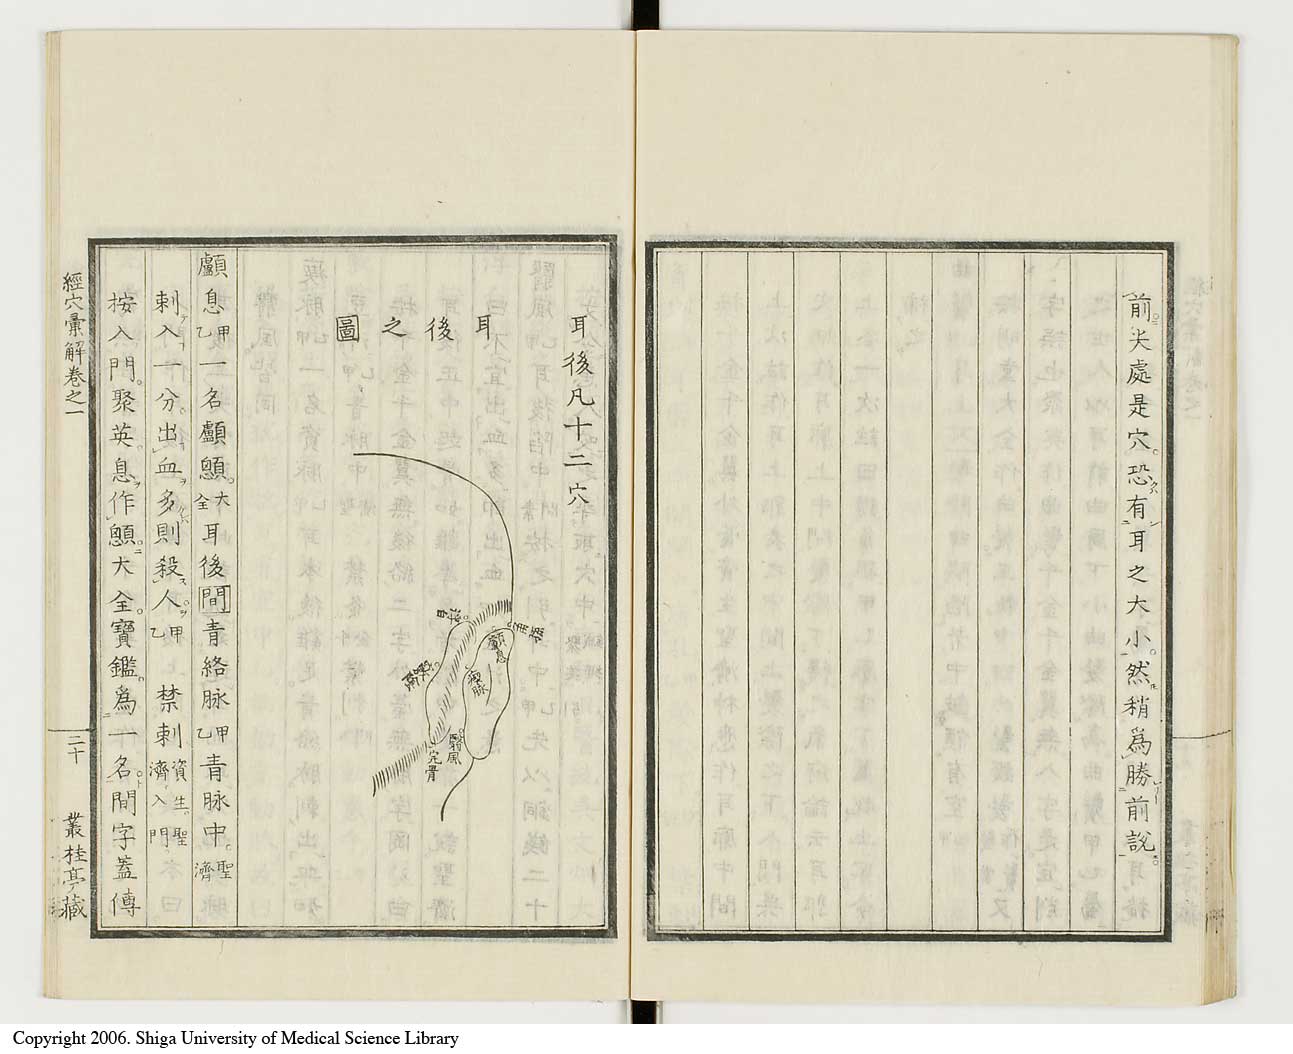 前尖處是穴恐有耳之大小然稍為勝前説
耳後凡十二穴
耳後之圖
角孫
顱息
瘈脉
翳風
完骨
顱息甲乙一名顱顖大全耳後間青絡脉甲乙青脉中聖濟
刺入一分出血多則殺人甲乙禁刺資生聖濟入門
按入門聚英息作顖大全寶鑑為一名間字蓋傳
經穴彙解卷之一
三十
叢桂亭藏
Copyright 2006. Shiga University of Medical Science Library